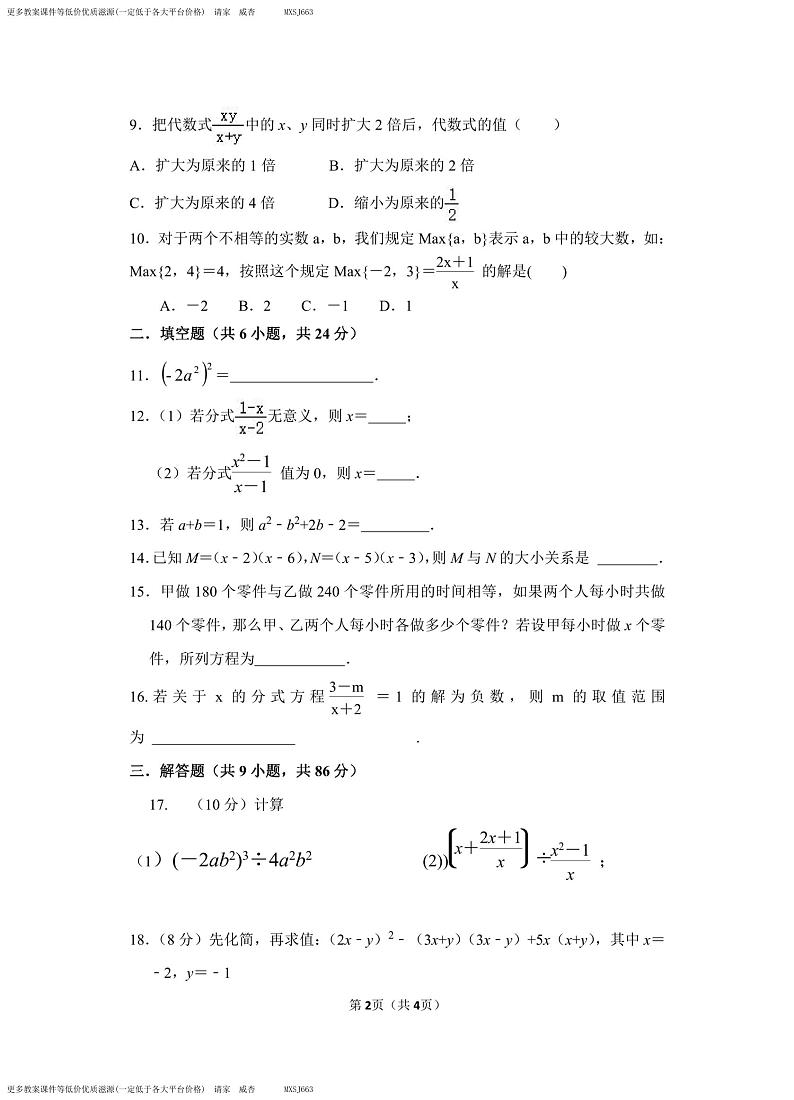 更多教案课件等低价优质滋源(一定低于各大平台价格) 请家 威杏 MXSJ663
9．把代数式xy/x+y中的 x、y 同时扩大 2 倍后，代数式的值（  ）
A．扩大为原来的 1 倍 B．扩大为原来的 2 倍
C．扩大为原来的 4 倍 D．缩小为原来的1/2
10．对于两个不相等的实数 a，b，我们规定 Max{a，b}表示 a，b 中的较大数，如：
Max{2，4}＝4，按照这个规定 Max{－2，3}＝2x＋1/x 的解是(  )
A．－2 B．2 C．－1 D．1
二．填空题（共 6 小题，共 24 分）
11．(-2a²)²＝__________________．
12．（1）若分式1-x/x-2无意义，则 x＝_____；
（2）若分式x²－1/x－1 值为 0，则 x＝_____．
13．若 a+b＝1，则 a²﹣b²+2b﹣2＝_________．
14．已知 M＝（x﹣2）（x﹣6），N＝（x﹣5）（x﹣3），则 M 与 N 的大小关系是 ________．
15．甲做 180 个零件与乙做 240 个零件所用的时间相等，如果两个人每小时共做
140 个零件，那么甲、乙两个人每小时各做多少个零件？若设甲每小时做 x 个零
件，所列方程为____________．
16.若关于 x 的分式方程3－m/x＋2 ＝1 的解为负数，则 m 的取值范围
为 ___________________ .
三．解答题（共 9 小题，共 86 分）
17. （10 分）计算
（1）(－2ab²)³÷4a²b² (2))(x＋2x＋1/x)÷x²－1/x ；
18．（8 分）先化简，再求值：（2x﹣y）²﹣（3x+y）（3x﹣y）+5x（x+y），其中 x＝
﹣2，y＝﹣1
第 2页（共 4页）
更多教案课件等低价优质滋源(一定低于各大平台价格) 请家 威杏 MXSJ663